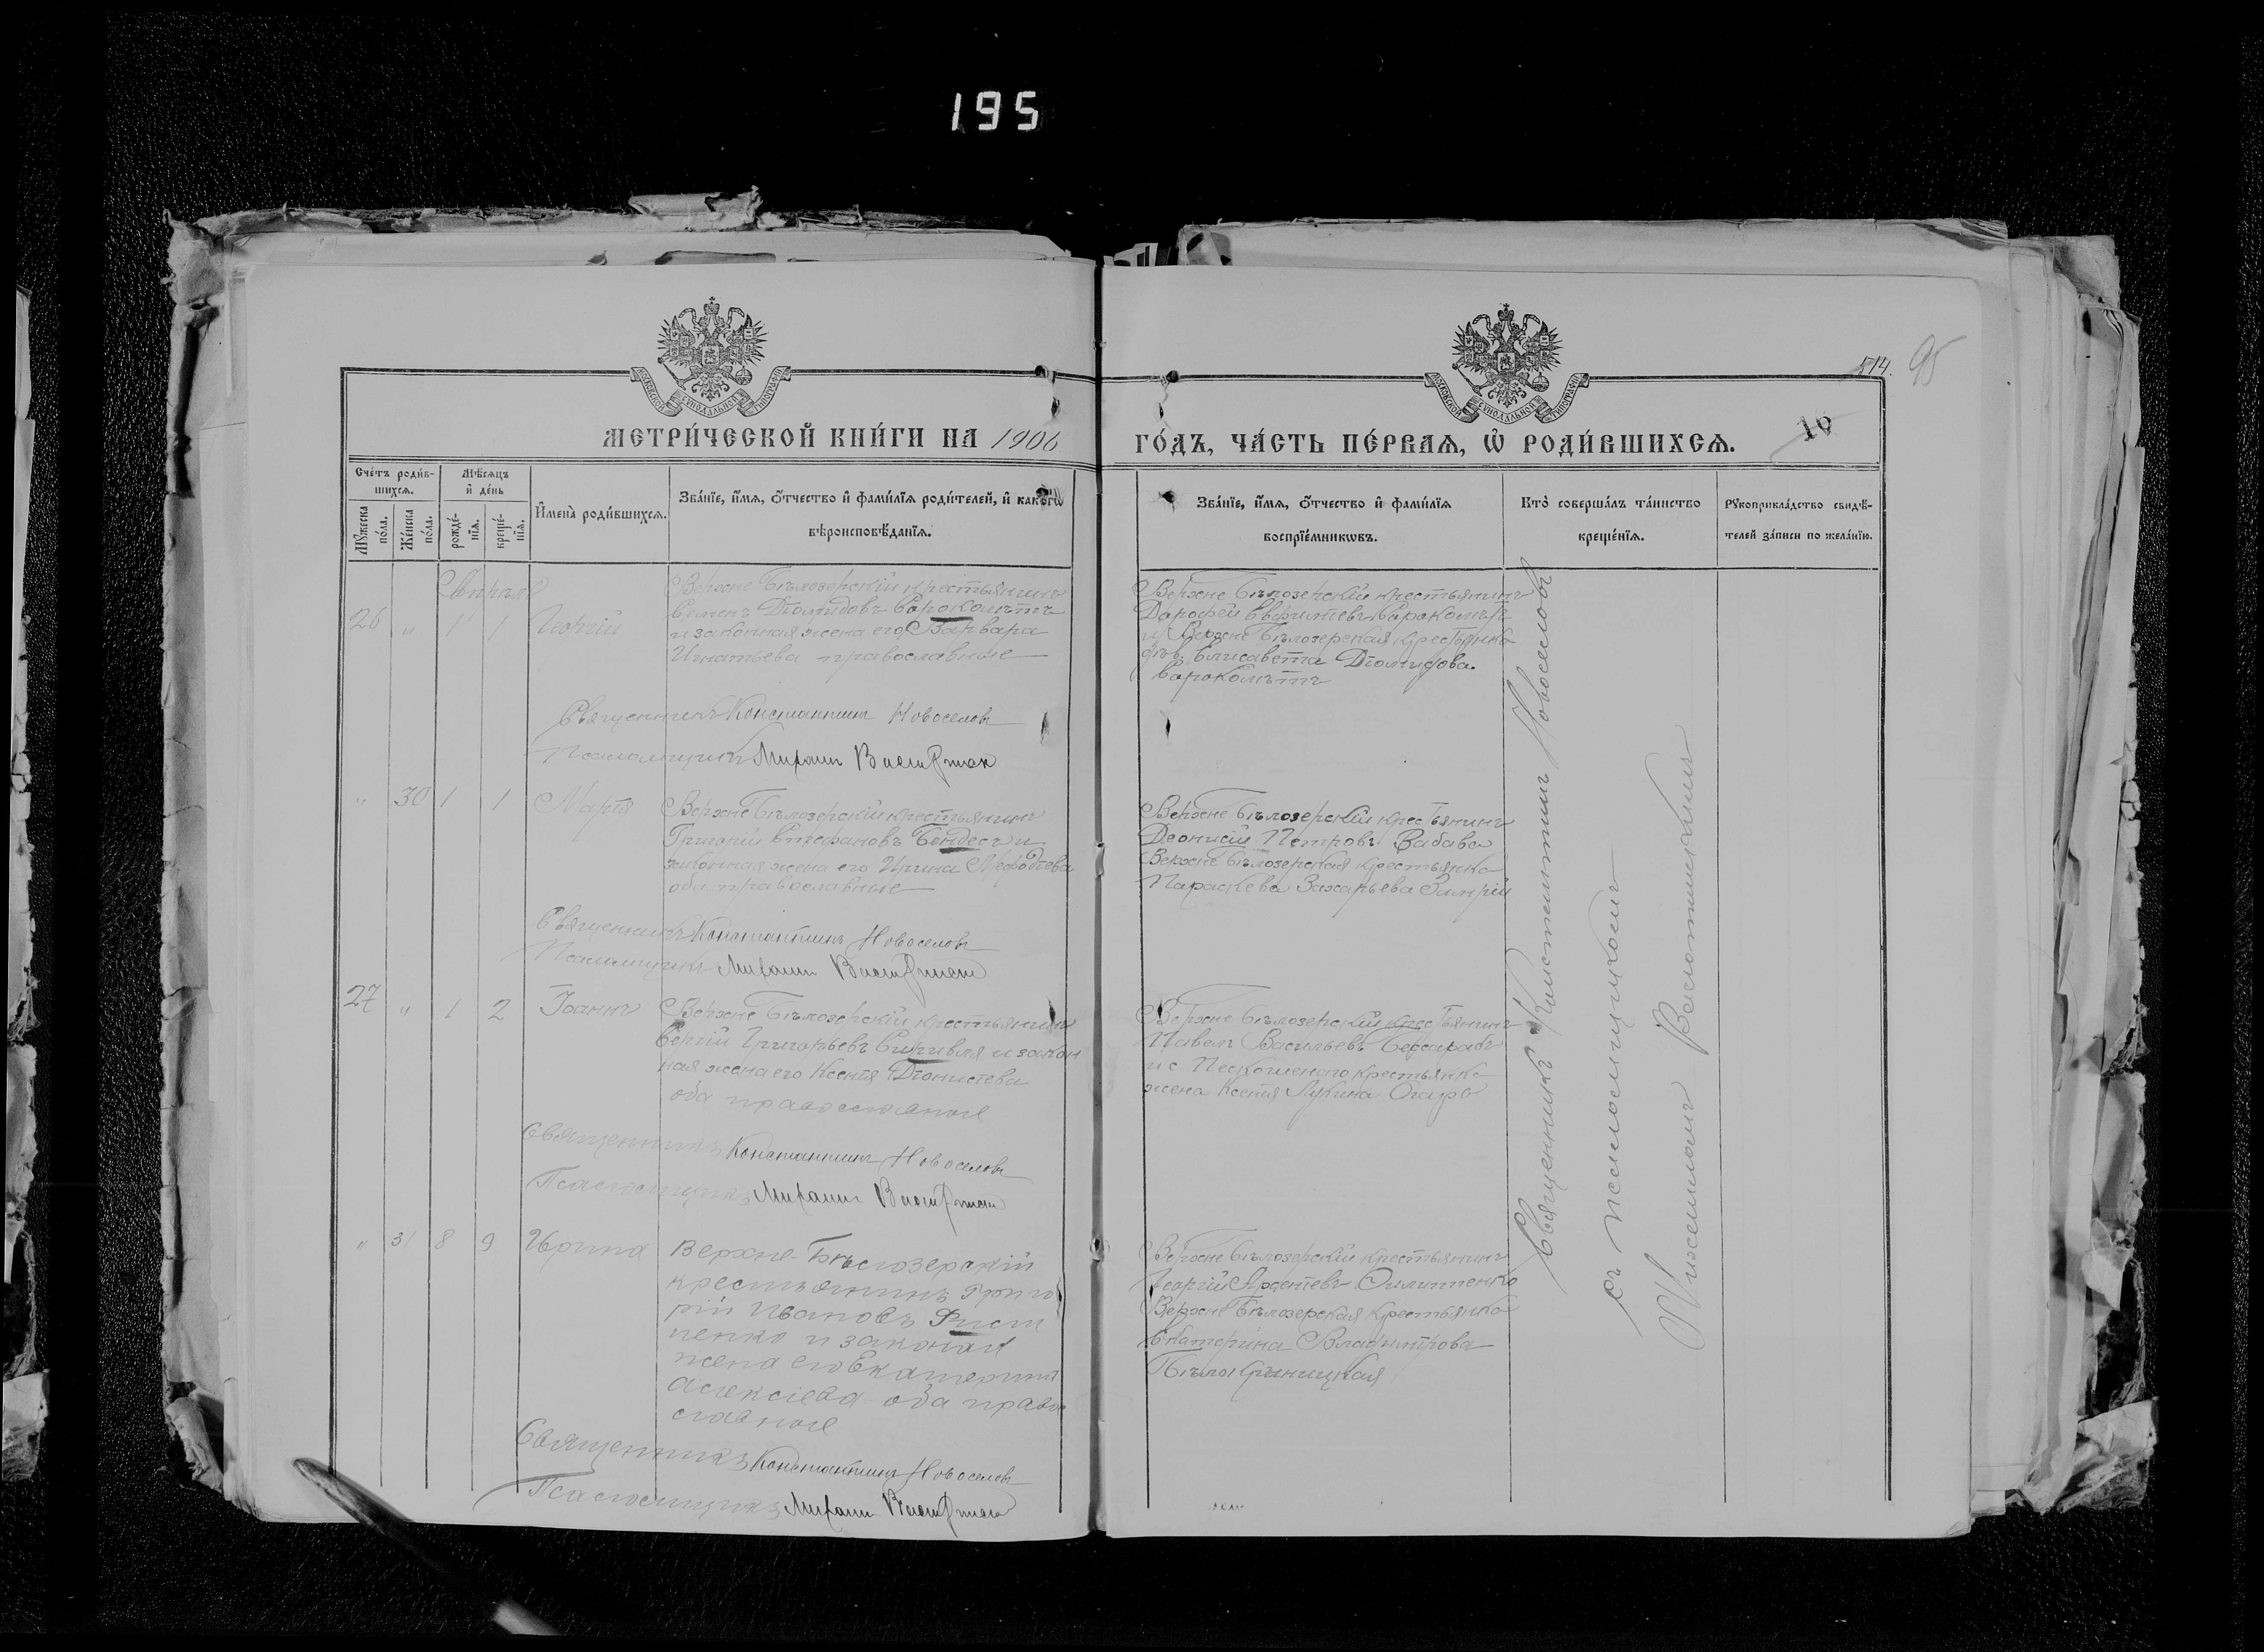 195
МОСКОВСКОЙ СУНОДАЛЬНОЙ ТИПОГРАФІИ
МОСКОВСКОЙ СУНОДАЛЬНОЙ ТИПОГРАФІИ
514. 95
16
МЕТРИ́ЧЕСКОЙ КНИ́ГИ НА 1906
ГО́ДЪ, ЧА́СТЬ ПЕ́РВАЯ, Ѿ РОДИ́ВШИХСЯ.
Сче́тъ роди́в-
шихся.
Мѣ́сяцъ
и҆ де́нь
Му́жеска по́ла.
Же́нска по́ла.
рожде́-
нїя.
креще́-
нїя.
И҆мена̀ роди́вшихся.
Зва́нїе, и҆́мя, ѻ҆́тчество и҆ фами́лїя роди́телей, и҆ како́гѡ
вѣроисповѣ́данїя.
Зва́нїе, и҆́мя, ѻ҆́тчество и҆ фами́лїя
воспрїе́мникѡвъ.
Кто̀ соверша́лъ та́инство
креще́нїя.
Рꙋкоприкла́дство свидѣ́-
телей за́писи по жела́нїю.
Апрѣля
26 " 1 1 Георгій
Верхне Бѣлозерскій крестьянинъ
Семенъ Діомидовъ Сороколѣтъ
и законная жена его Варвара
Игнатьева православные
Верхне Бѣлозерскій крестьянинъ
Дорофей Сороколѣтъ
и Верхне Бѣлозерская крестьянка
Елисавета Діомидова
Сороколѣтъ
Священникъ Константинъ Новоселовъ
Псаломщикъ Михаилъ
" 30 1 1 Марія
Верхне Бѣлозерскій крестьянинъ
Григорій Стефановъ Бендесъ и
законная жена его Ирина Мефодіева
оба православные
Верхне Бѣлозерскій крестьянинъ
Деонисій Петровъ Бабава
Верхне Бѣлозерская крестьянка
Параскева Захарьева
Священникъ Константинъ Новоселовъ
Псаломщикъ Михаилъ
27 " 1 2 Іоаннъ
Верхне Бѣлозерскій крестьянинъ
Сергій Григорьевъ и закон
ная жена его Ксенія Діонисіева
оба православные
Верхне Бѣлозерскій крестьянинъ
Павелъ Васильевъ Бессарабъ
и с крестьянка
жена Ксенія Лукина
Священникъ Константинъ Новоселовъ
Псаломщикъ Михаилъ
" 31 8 9 Ирина
Верхне-Бѣлозерскій
крестьянинъ Григо
рій Ивановъ
ненко и законая
жена его Екатерина
Алексіева оба право
славные
Верхне Бѣлозерскій крестьянинъ
Георгій Арсеніевъ Филиппенко
Верхне Бѣлозерская крестьянка
Екатерина Владимірова
Бѣлокриницкая
Священникъ Константинъ Новоселовъ
Псаломщикъ Михаилъ
Священникъ Константинъ Новоселовъ
съ псаломщикомъ
Михаиломъ